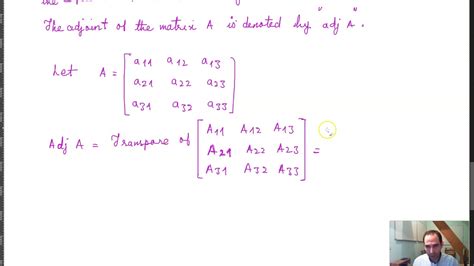 The adjoint of the matrix A is denoted by adj A.
Let A = [ a11 a12 a13
a21 a22 a23
a31 a32 a33 ]
Adj A = Transpore of [ A11 A12 A13
A21 A22 A23
A31 A32 A33 ] =